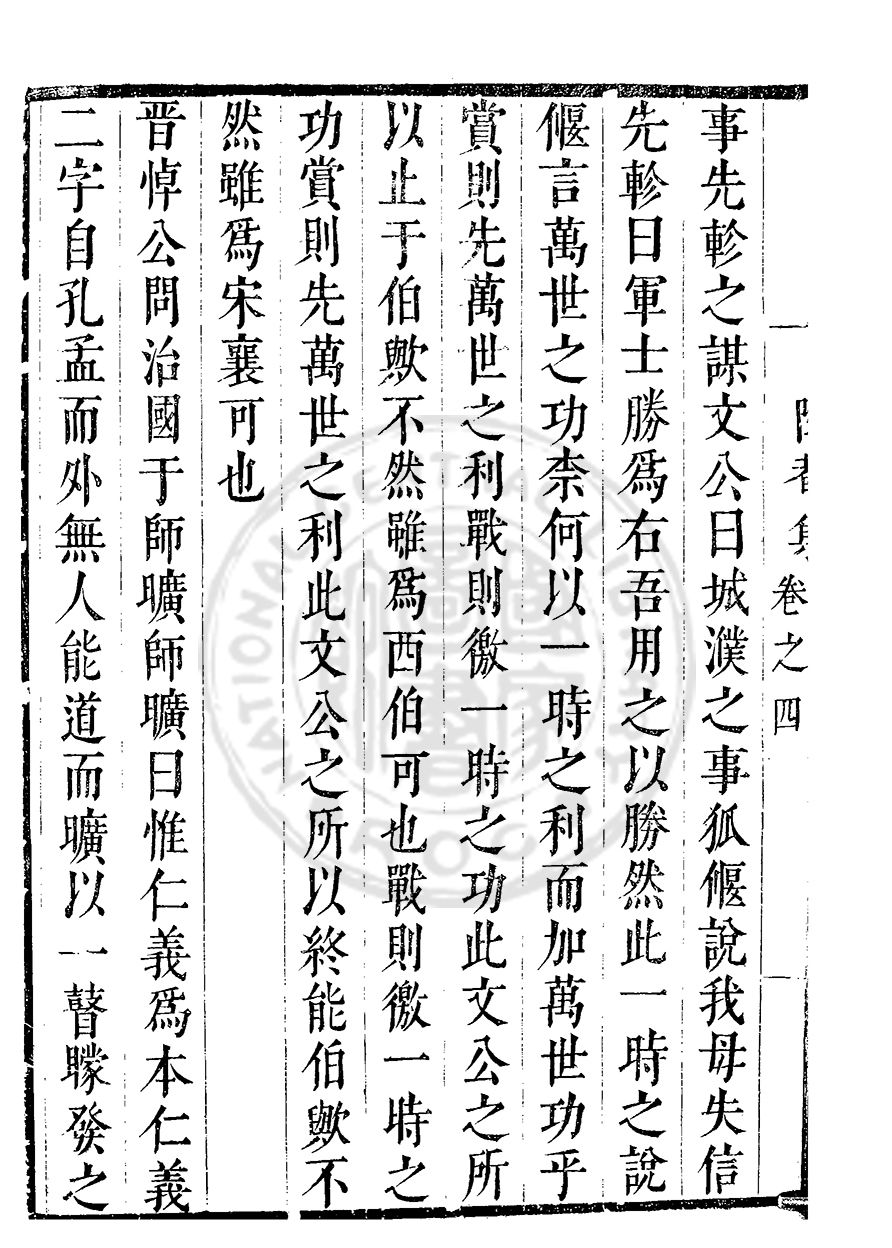 集卷之四
事先軫之謀文公曰城濮之事狐偃說我毋失信
先軫曰軍士勝爲右吾用之以勝然此一時之說
偃言萬世之功柰何以一時之利而加萬世功乎
賞則先萬世之利戰則徼一時之功此文公之所
以止于伯歟不然雖爲西伯可也戰則徼一時之
功賞則先萬世之利此文公之所以終能伯歟不
然雖爲宋襄可也
晉悼公問治國于師曠師曠曰惟仁義爲本仁義
二字自孔孟而外無人能道而曠以一瞽矇發之
NATIONAL CENTRAL LIBRARY